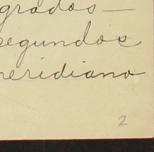 grados —
segundos
meridiano
2